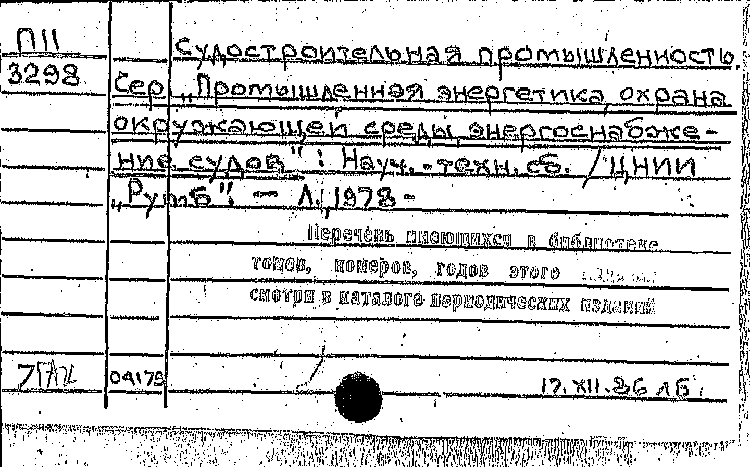 П11
3298
Судостроительная промышленность.
Сер. „Промышленная энергетика, охрана
окружающей среды, энергоснабже-
ние судов": Науч.-техн. сб. / ЦНИИ
„Румб". — Л., 1978 -
Перечень имеющихся в библиотеке
томов, номеров, годов этого
смотри в каталоге периодических изданий
04178
17.XII.86 ЛБ.